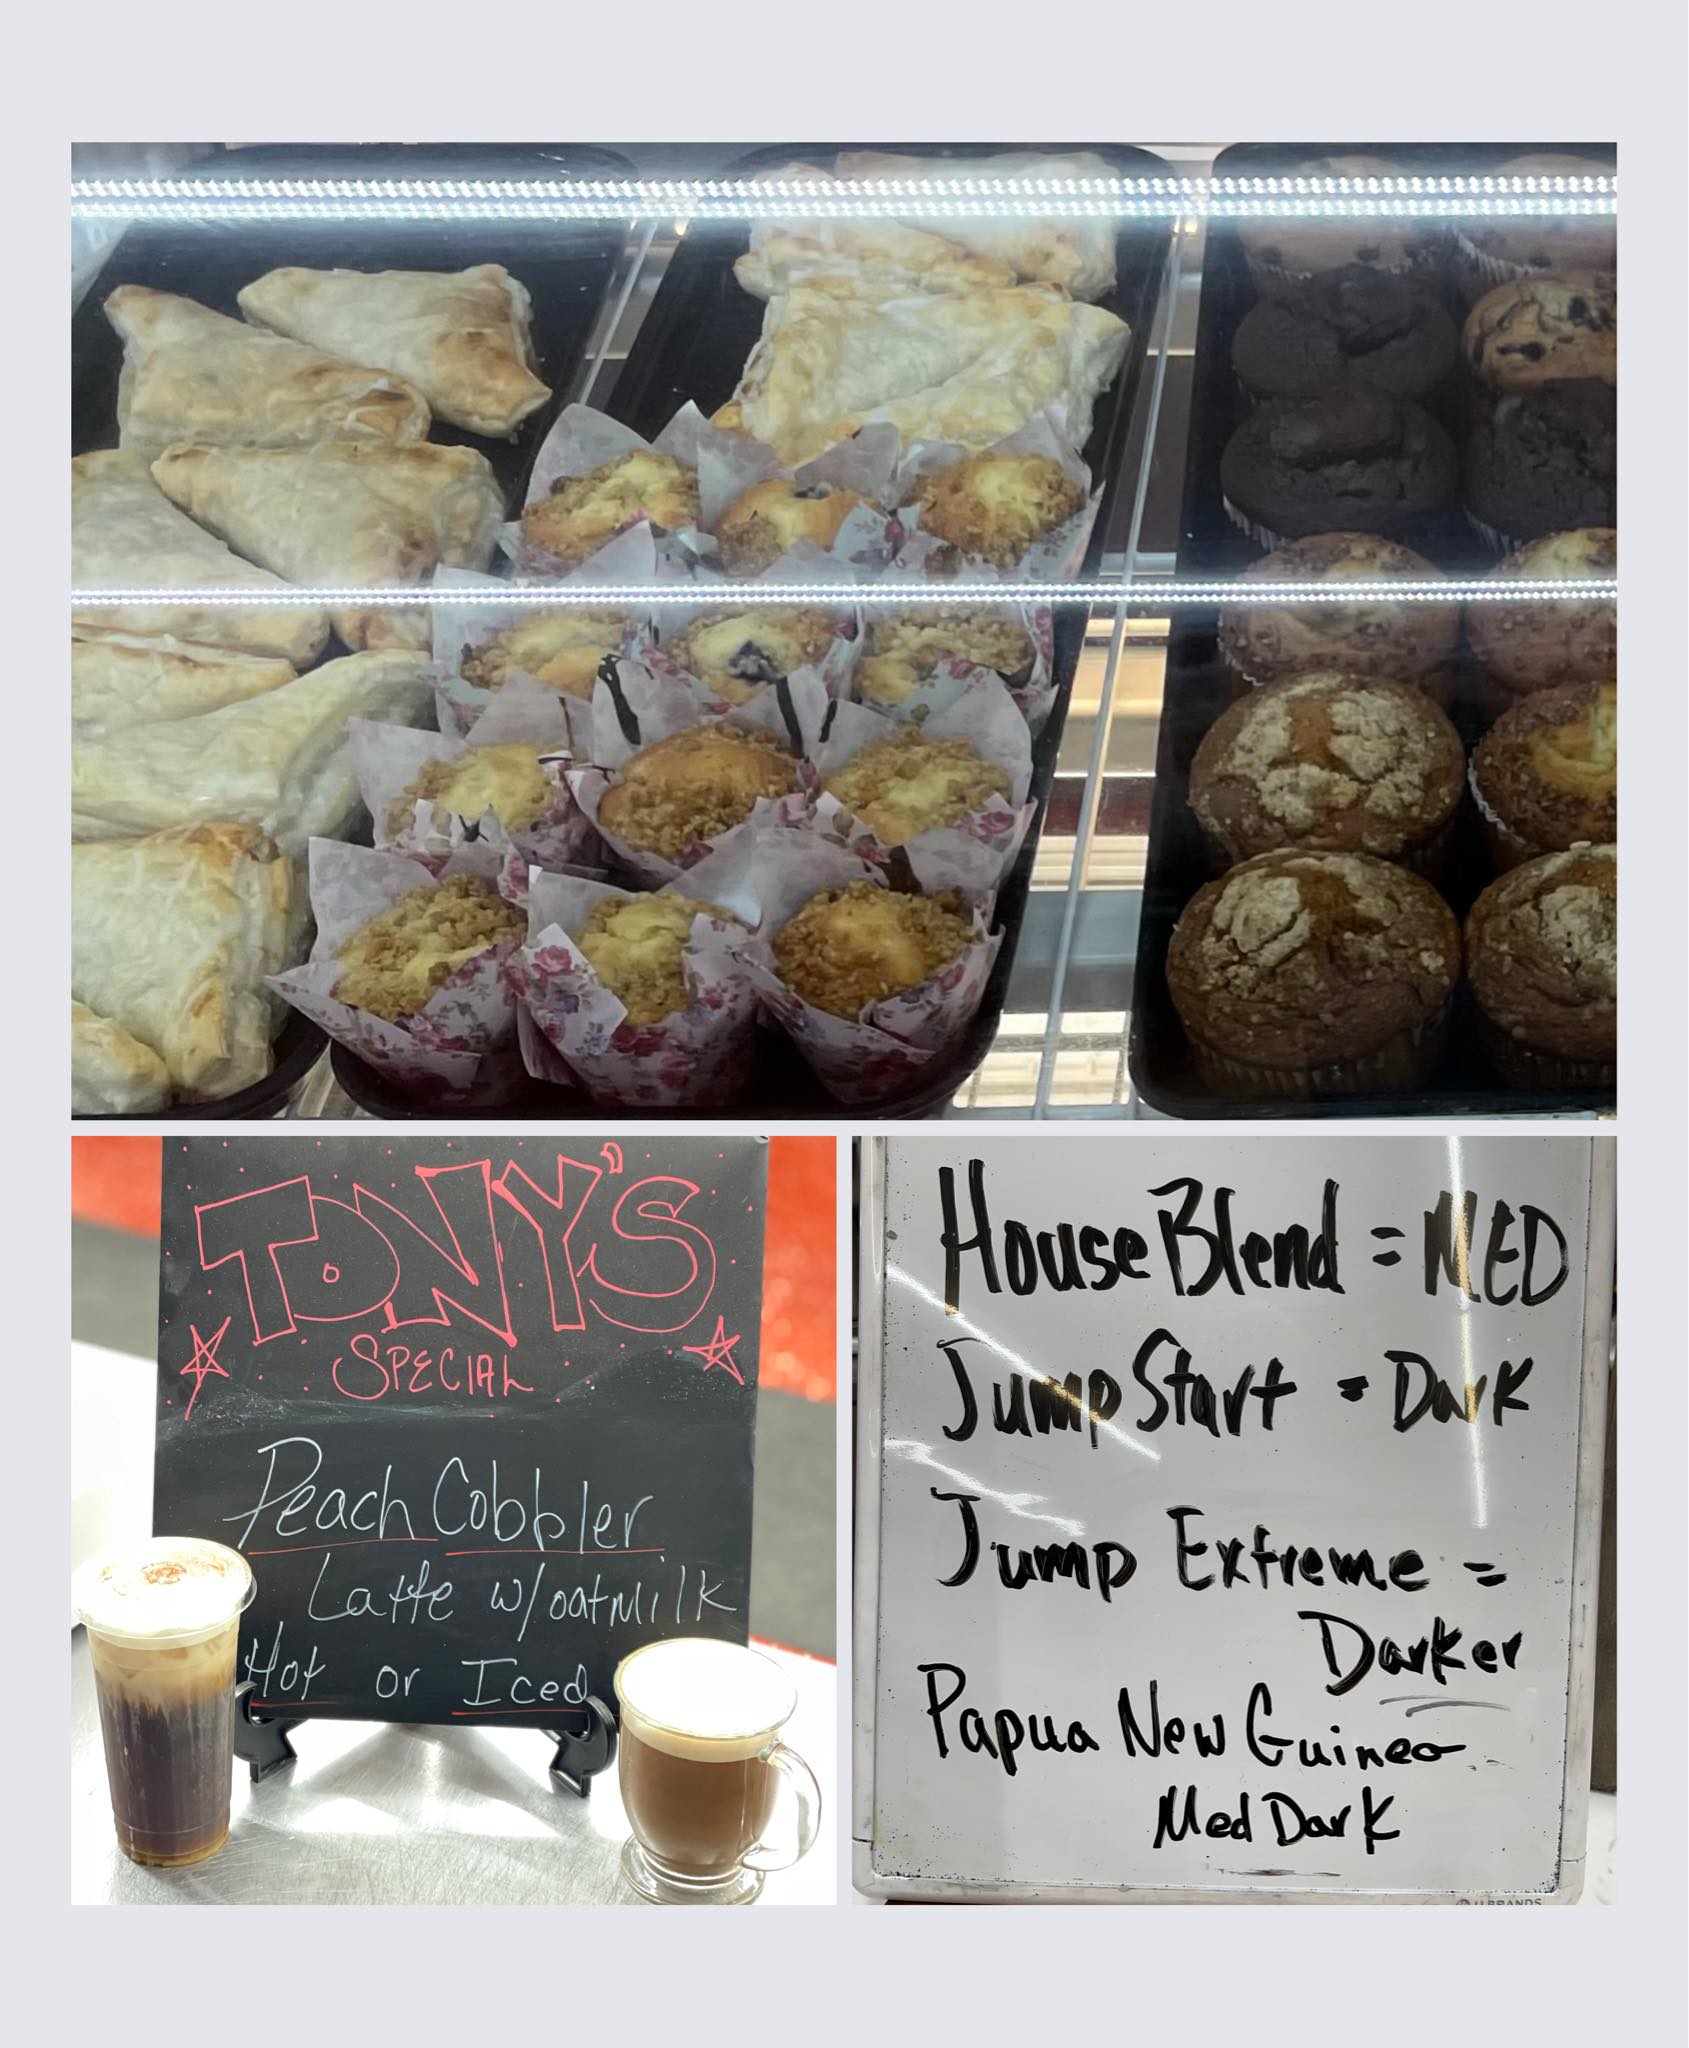 TONY'S
SPECIAL
Peach Cobbler
Latte w/oatmilk
Hot or Iced
House Blend = MED
Jump Start = Dark
Jump Extreme =
Darker
Papua New Guinea
Med Dark
U BRANDS